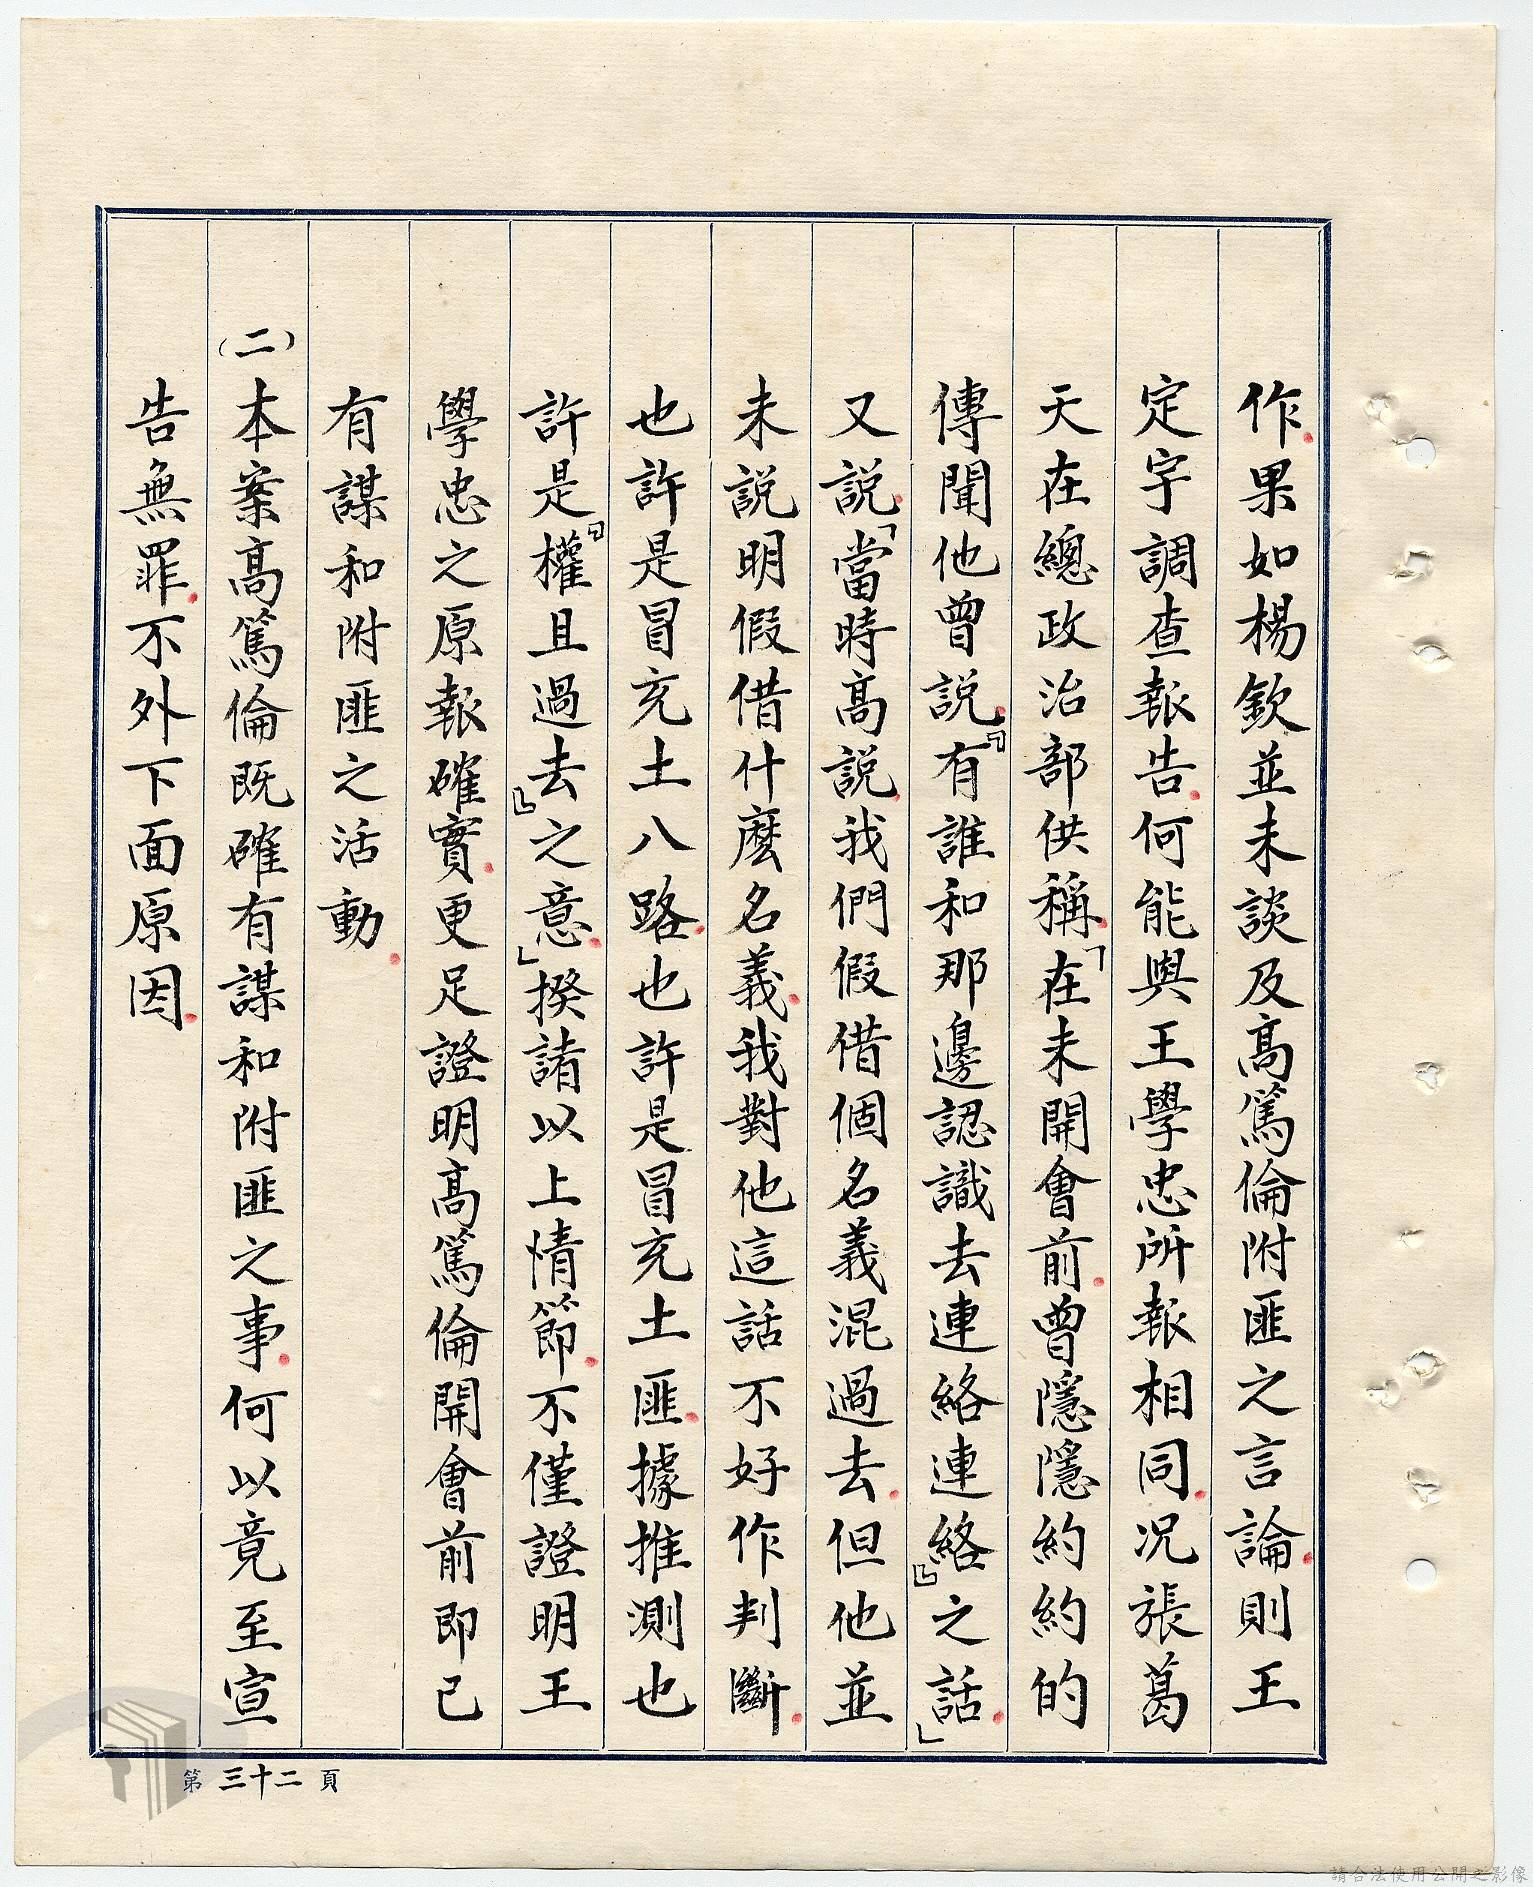 作。果如楊欽並未談及高篤倫附匪之言論。則王
定宇調查報告。何能與王學忠所報相同。况張葛
天在總政治部供稱。「在未開會前。曾隱隱約約的
傳聞他曾説。『有誰和那邊認識去連絡連絡』之話。」
又説。「當時高説。我們假借個名義混過去。但他並
未説明假借什麽名義。我對他這話不好作判斷。
也許是冒充土八路。也許是冒充土匪。據推測也
許是『權且過去』之意。」揆諸以上情節。不僅證明王
學忠之原報確實。更足證明高篤倫開會前即已
有謀和附匪之活動。
(二)本案高篤倫既確有謀和附匪之事。何以竟至宣
告無罪。不外下面原因。
第三十二頁
請合法使用公開之影像